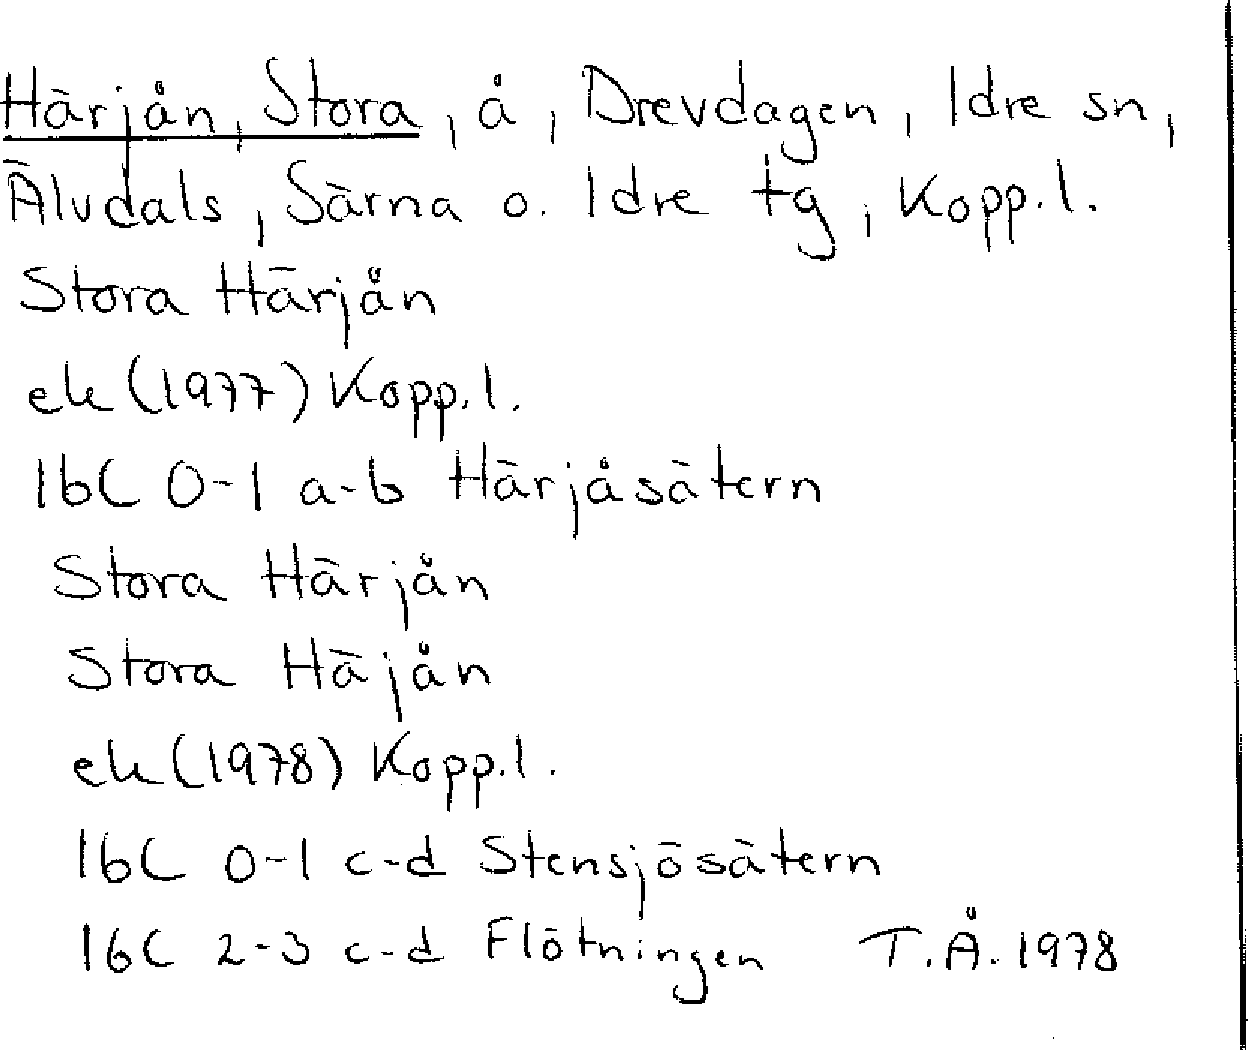 Härjån, Stora, å, Drevdagen, Idre sn,
Älvdals, Särna o. Idre tg, Kopp.l.
Stora Härjån
ek (1977) Kopp.l.
16C 0-1 a-b Härjåsätern
Stora Härjån
Stora Häjån
ek (1978) Kopp.l.
16C 0-1 c-d Stensjösätern
16C 2-3 c-d Flötningen T.Å. 1978